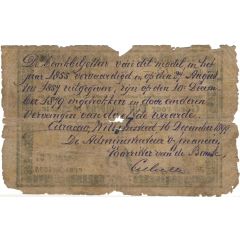 De Bankbiljetten van dit model in het
jaar 1855 vervaardigd en op den August
1857 uitgegeven, zijn op den 10 Decem
ber 1879 ingetrokken en door anderen
Vervangen van dezelfde waarde.
Curaçao, Willemstad 16 December 1879
De Administrateur v. financien
Voorzitter van de